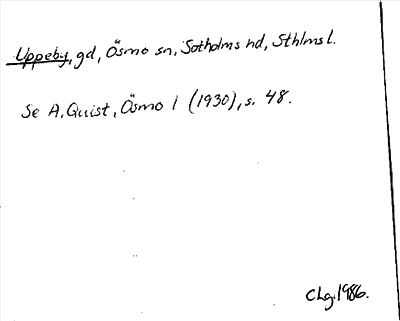 Uppeby, gd, Ösmo sn, Sotholms hd, Sthlms l.
Se A. Quist, Ösmo I (1930), s. 48.
CLg. 1986.